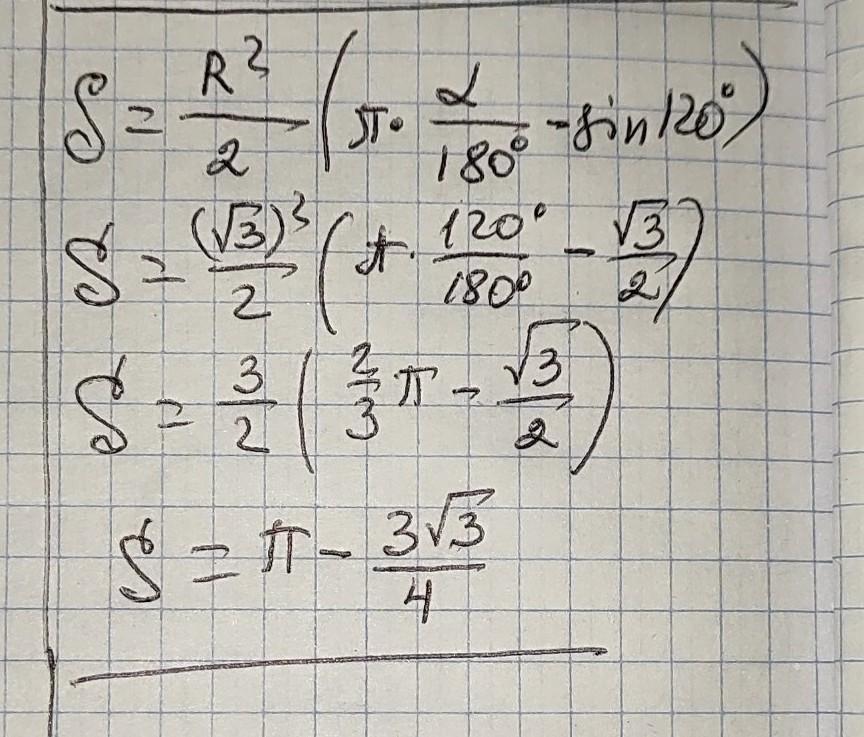 S = R²/2 (π · α/180° - sin120°)
S = (√3)²/2 (π · 120°/180° - √3/2)
S = 3/2 (2/3 π - √3/2)
S = π - 3√3/4